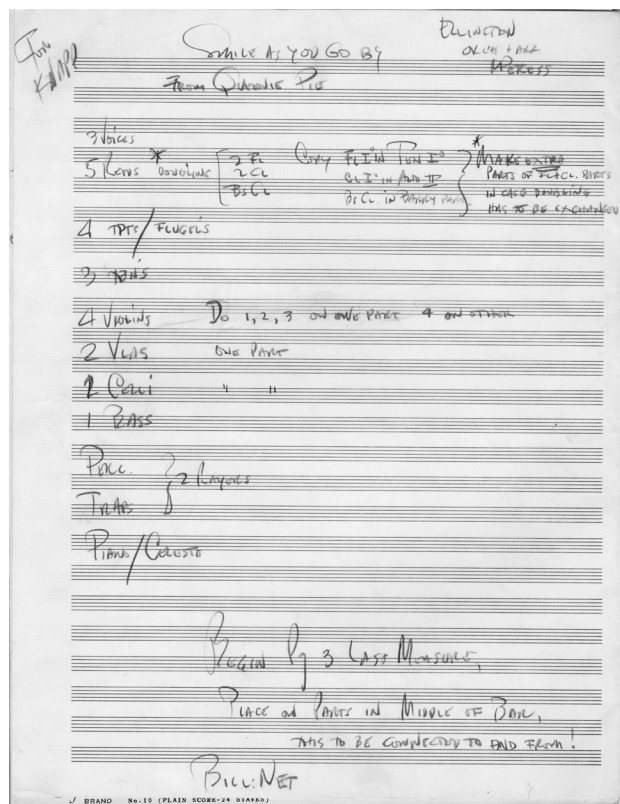 For
KNAPP
ELLINGTON
SMILE AS YOU GO BY
ORCH + ARR
MPERESS
FROM QUEENIE PIE
3 VOICES
5 REEDS * DOUBLING
2 FL
2 CL
BsCL
COPY FL I° IN TEN I°
CL I° IN ALTO II
BsCL. IN BARRY PART
* MAKE EXTRA
PARTS OF FL & CL. PARTS
IN CASE DOUBLING
HAS TO BE EXCHANGED
4 TPTS/FLUGELS
3 TBNS
4 VIOLINS DO 1, 2, 3 ON ONE PART 4 ON OTHER
2 VLAS ONE PART
2 CELLI " "
1 BASS
PERC.
TRAPS
2 PLAYERS
PIANO/CELESTE
BEGIN Pg 3 LAST MEASURE,
PLACE ON PARTS IN MIDDLE OF BAR,
THIS TO BE CONNECTED TO AND FROM!
BILL: NET
J BRAND No. 10 (PLAIN SCORE-24 STAVES)